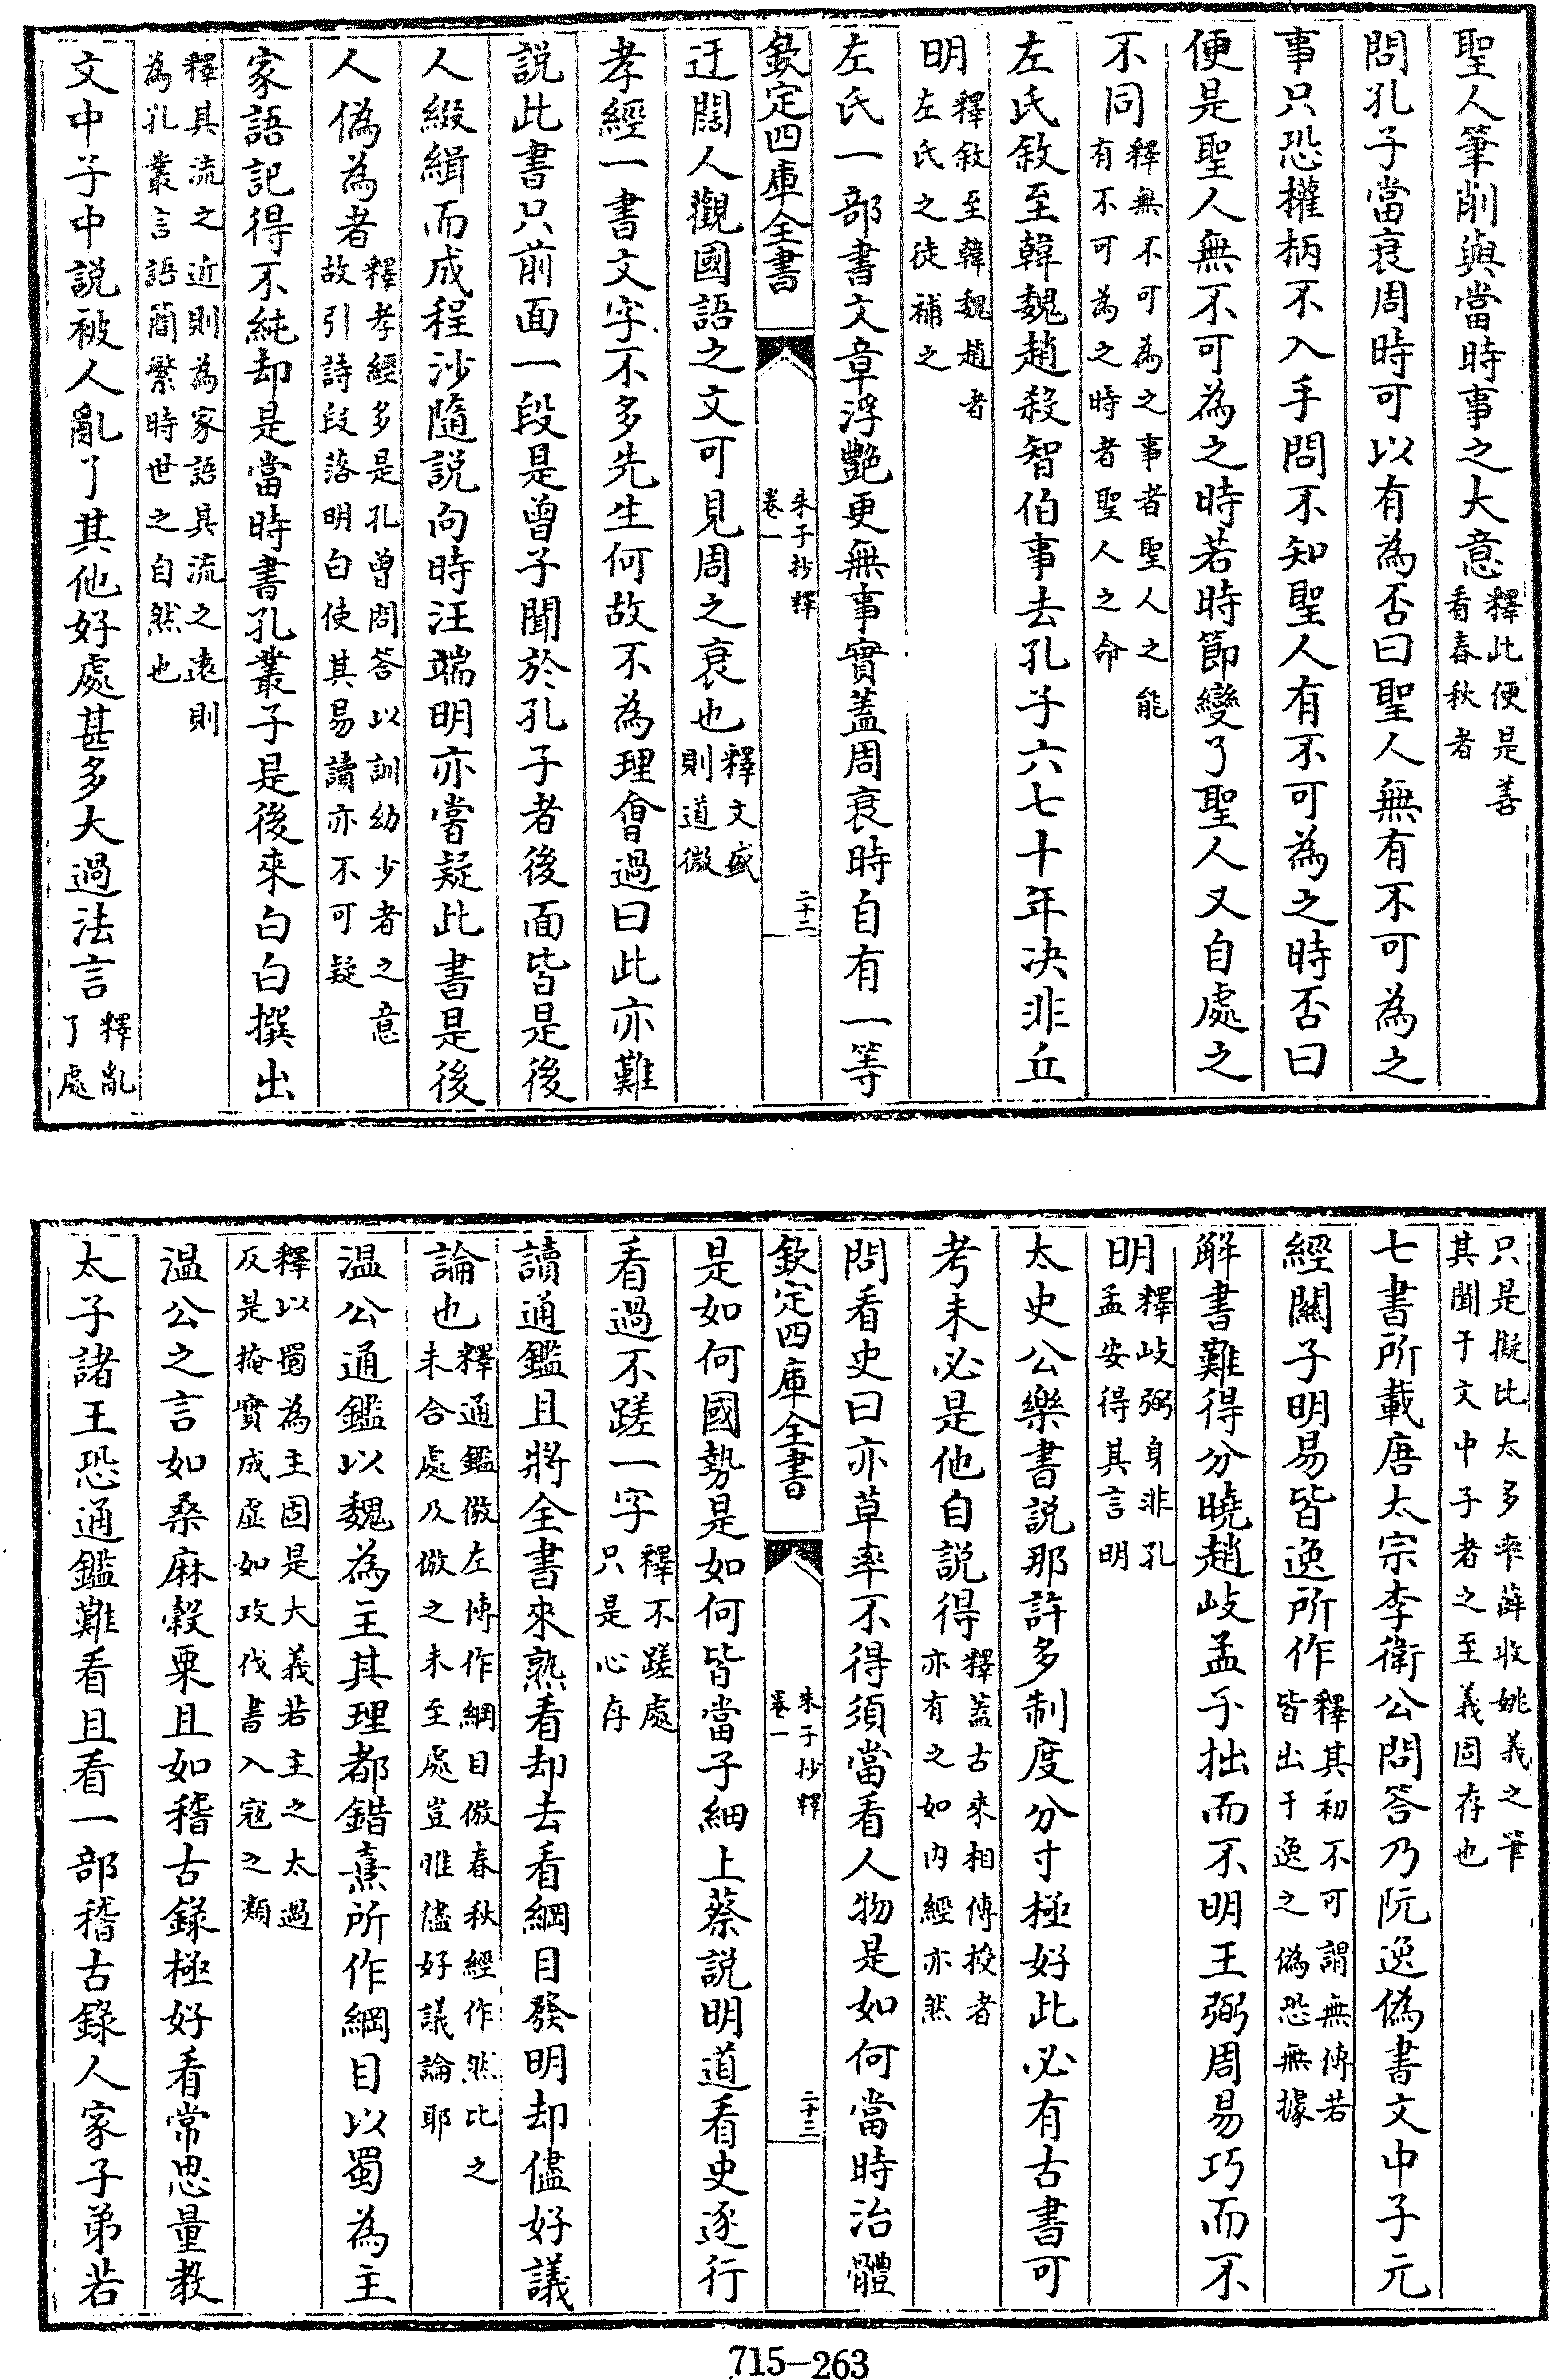 聖人筆削與當時事之大意釋此便是善看春秋者
問孔子當衰周時可以有為否曰聖人無有不可為之
事只恐權柄不入手問不知聖人有不可為之時否曰
便是聖人無不可為之時若時節變了聖人又自處之
不同釋無不可為之事者聖人之能有不可為之時者聖人之命
左氏敘至韓魏趙殺智伯事去孔子六七十年决非丘
明釋敘至韓魏趙者左氏之徒補之
左氏一部書文章浮艷更無事實蓋周衰時自有一等
欽定四庫全書
朱子抄釋
卷一
二十二
迂闊人觀國語之文可見周之衰也釋文盛則道微
孝經一書文字不多先生何故不為理會過曰此亦難
説此書只前面一段是曾子聞於孔子者後面皆是後
人綴緝而成程沙隨説向時汪端明亦嘗疑此書是後
人偽為者釋孝經多是孔曾問答以訓幼少者之意故引詩段落明白使其易讀亦不可疑
家語記得不純却是當時書孔叢子是後來白白撰出
釋其流之近則為家語其流之遠則為孔叢言語簡繁時世之自然也
文中子中説被人亂了其他好處甚多大過法言釋亂了處
只是擬比太多率薛收姚義之筆其聞于文中子者之至義固存也
七書所載唐太宗李衛公問答乃阮逸偽書文中子元
經關子明易皆逸所作釋其初不可謂無傳若皆出于逸之偽恐無據
解書難得分曉趙岐孟子拙而不明王弼周易巧而不
明釋岐弼身非孔孟安得其言明
太史公樂書説那許多制度分寸極好此必有古書可
考未必是他自説得釋蓋古來相傳授者亦有之如内經亦然
問看史曰亦草率不得須當看人物是如何當時治體
欽定四庫全書
朱子抄釋
卷一
二十三
是如何國勢是如何皆當子細上蔡説明道看史逐行
看過不蹉一字釋不蹉處只是心存
讀通鑑且將全書來熟看却去看綱目發明却儘好議
論也釋通鑑倣左傳作綱目倣春秋經作然比之未合處乃倣之未至處豈惟儘好議論耶
温公通鑑以魏為主其理都錯熹所作綱目以蜀為主
釋以蜀為主固是大義若主之太過反是掩實成虚如攻伐書入寇之類
温公之言如桑麻榖粟且如稽古錄極好看常思量教
太子諸王恐通鑑難看且看一部稽古錄人家子弟若
715-263